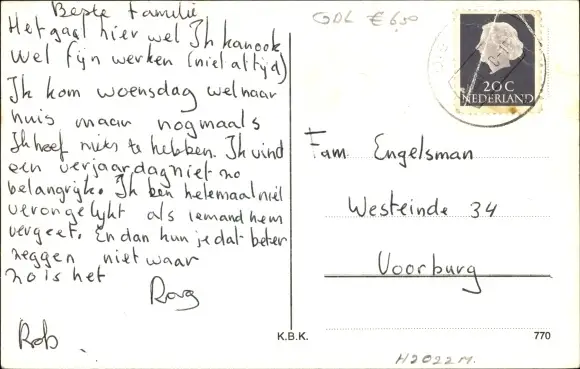 Beste Familie
Het gaat hier wel Ik kan ook
wel fijn werken (niet altijd)
Ik kom woensdag wel naar
huis maar nogmaals
Ik hoef niets te hebben. Ik vind
een verjaardag niet zo
belangrijk. Ik ben helemaal niet
verongelijkt als iemand hem
vergeet. En dan kun je dat beter
zeggen niet waar
zo is het
Rob
GDL € 6,50
20 C
NEDERLAND
Fam Engelsman
Westeinde 34
Voorburg
K.B.K.
770
H2022M.